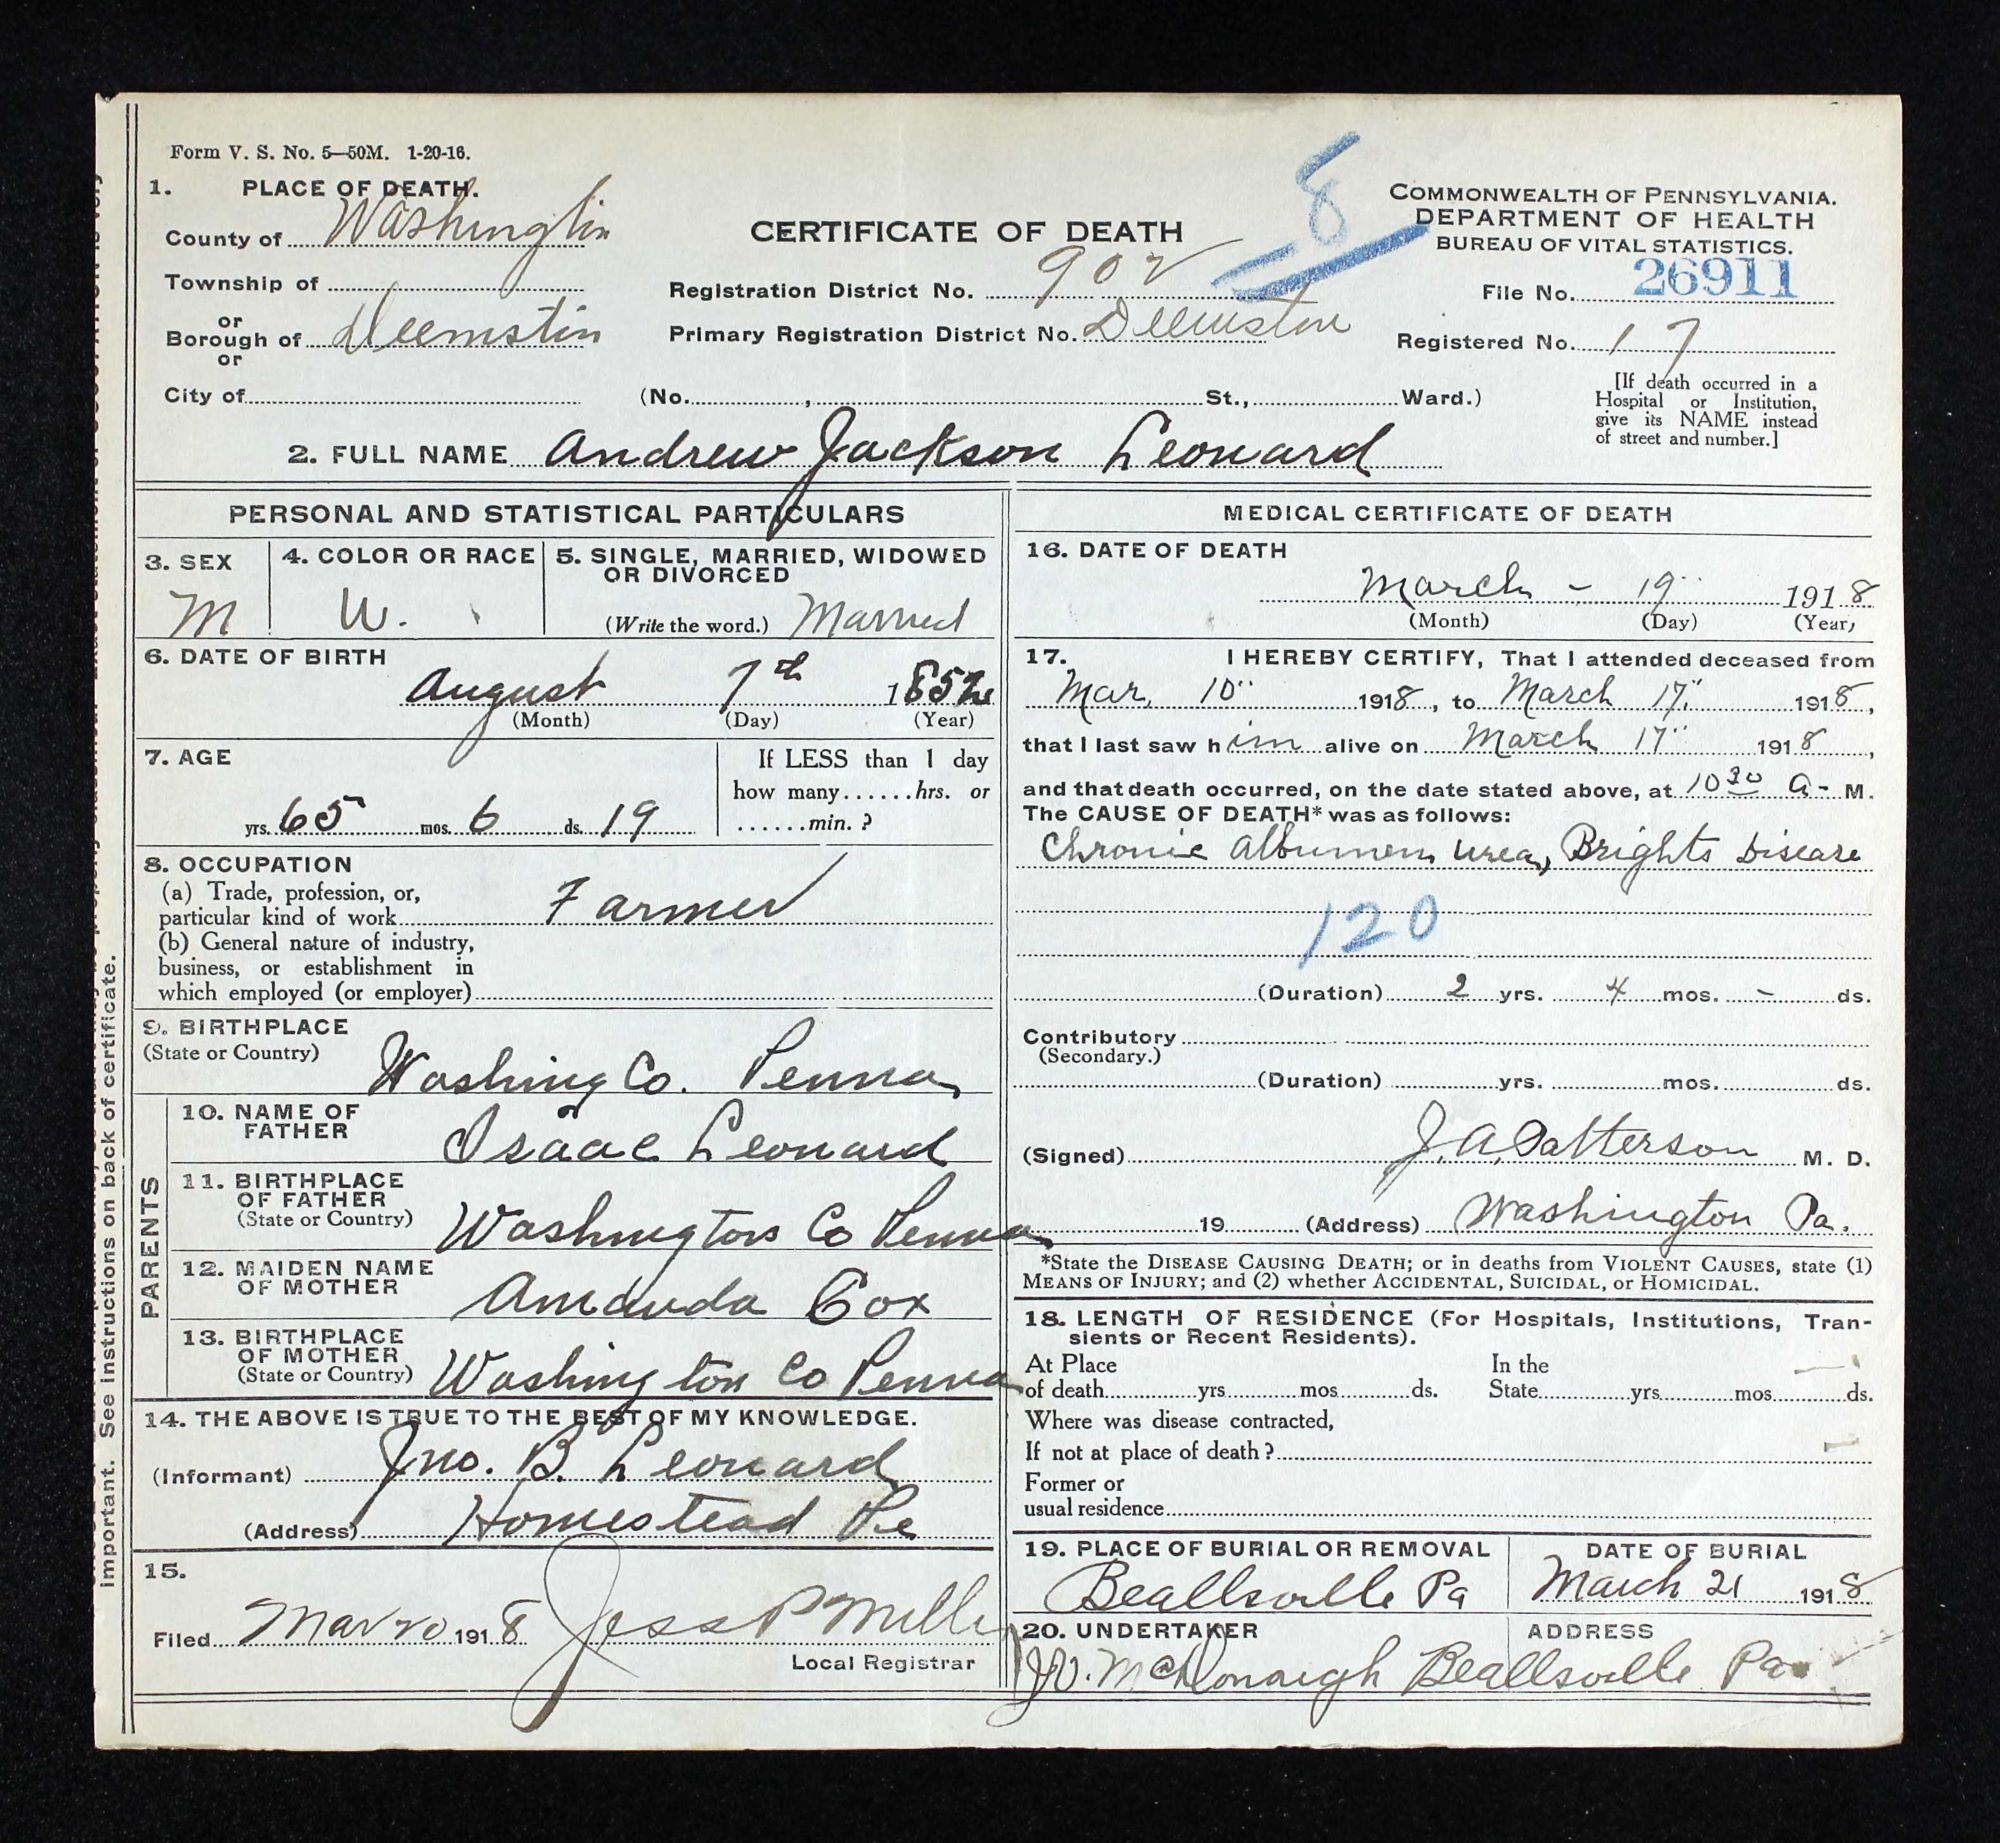 Form V. S. No. 5—50M. 1-20-16.
1. PLACE OF DEATH.
County of Washington
Township of
or
Borough of Deemston
or
City of
CERTIFICATE OF DEATH
Registration District No. 902
Primary Registration District No. Deemston
(No. , St., Ward.)
8
COMMONWEALTH OF PENNSYLVANIA.
DEPARTMENT OF HEALTH
BUREAU OF VITAL STATISTICS.
File No. 26911
Registered No. 17
[If death occurred in a
Hospital or Institution,
give its NAME instead
of street and number.]
2. FULL NAME Andrew Jackson Leonard
PERSONAL AND STATISTICAL PARTICULARS
3. SEX
M
4. COLOR OR RACE
W.
5. SINGLE, MARRIED, WIDOWED
OR DIVORCED
(Write the word.) Married
6. DATE OF BIRTH
August 7th 1852
(Month) (Day) (Year)
7. AGE
yrs. 65 mos. 6 ds. 19
If LESS than 1 day
how many......hrs. or
......min. ?
8. OCCUPATION
(a) Trade, profession, or,
particular kind of work Farmer
(b) General nature of industry,
business, or establishment in
which employed (or employer)
9. BIRTHPLACE
(State or Country)
Washing Co. Penna
PARENTS
10. NAME OF
FATHER
Isaac Leonard
11. BIRTHPLACE
OF FATHER
(State or Country)
Washington Co Penna
12. MAIDEN NAME
OF MOTHER
Amanda Cox
13. BIRTHPLACE
OF MOTHER
(State or Country)
Washington Co Penna
14. THE ABOVE IS TRUE TO THE BEST OF MY KNOWLEDGE.
(Informant) Jno. B. Leonard
(Address) Homestead Pa
15.
Filed Mar 20 1918 Jess P Mille
Local Registrar
MEDICAL CERTIFICATE OF DEATH
16. DATE OF DEATH
March - 19 1918
(Month) (Day) (Year)
17. I HEREBY CERTIFY, That I attended deceased from
Mar, 10 1918, to March 17 1918,
that I last saw him alive on March 17 1918,
and that death occurred, on the date stated above, at 10 30 A- M.
The CAUSE OF DEATH* was as follows:
Chronic Albumen urea, Brights Disease
120
(Duration) 2 yrs. 4 mos. - ds.
Contributory
(Secondary.)
(Duration) yrs. mos. ds.
(Signed) J. A. Patterson M. D.
19 (Address) Washington Pa.
*State the DISEASE CAUSING DEATH; or in deaths from VIOLENT CAUSES, state (1)
MEANS OF INJURY; and (2) whether ACCIDENTAL, SUICIDAL, or HOMICIDAL.
18. LENGTH OF RESIDENCE (For Hospitals, Institutions, Tran-
sients or Recent Residents).
At Place In the
of death yrs mos ds. State yrs mos ds.
Where was disease contracted,
If not at place of death?
Former or
usual residence
19. PLACE OF BURIAL OR REMOVAL
Beallsville Pa
DATE OF BURIAL
March 21 1918
20. UNDERTAKER ADDRESS
McDonaugh Beallsville Pa
important. See instructions on back of certificate.